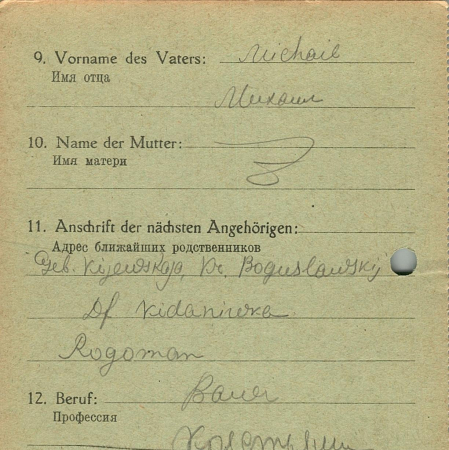 9. Vorname des Vaters: Michail
Имя отца
Михаил
10. Name der Mutter:
Имя матери
11. Anschrift der nächsten Angehörigen:
Адрес ближайших родственников
Geb. Kijewskaja, Kr. Boguslawskij
Df Kidaniwka
Rogoman
12. Beruf: Bauer
Профессия